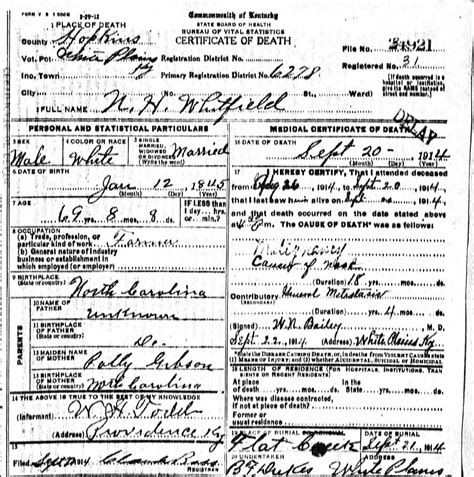 FORM V. S. 1 500M 2-29-12
Commonwealth of Kentucky
STATE BOARD OF HEALTH
BUREAU OF VITAL STATISTICS
CERTIFICATE OF DEATH
1 PLACE OF DEATH
County Hopkins
File No. 34921
Vot. Pct White Plains Ky Registration District No.
Registered No. 31
Inc. Town Primary Registration District No. 6278
City (No. St. Ward)
(If death occurred in a hospital or institution, give its NAME instead of street and number.)
2 FULL NAME N. H. Whitfield
DELAY
PERSONAL AND STATISTICAL PARTICULARS
3 SEX Male
4 COLOR OR RACE White
5 SINGLE, MARRIED, WIDOWED OR DIVORCED (Write the word) Married
6 DATE OF BIRTH
Jan 12 1845
(Month) (Day) (Year)
7 AGE
69 yrs. 8 mos. 8 ds.
IF LESS than 1 day... hrs. or... min?
8 OCCUPATION
(a) Trade, profession, or particular kind of work Farmer
(b) General nature of industry business or establishment in which employed (or employer)
9 BIRTHPLACE
(State or country) North Carolina
PARENTS
10 NAME OF FATHER unknown
11 BIRTHPLACE OF FATHER
(State or country) Do.
12 MAIDEN NAME OF MOTHER Polly Gibson
13 BIRTHPLACE OF MOTHER
(State or country) Carolina
14 THE ABOVE IS TRUE TO THE BEST OF MY KNOWLEDGE
(Informant) W. H. Todd
(Address) Providence Ky
15
Filed 1914
REGISTRAR
MEDICAL CERTIFICATE OF DEATH
16 DATE OF DEATH
Sept 20 - 1914
(Month) (Day) (Year)
17 I HEREBY CERTIFY, That I attended deceased
from Aug 26, 1914, to Sept 20, 1914,
that I last saw him alive on Sept, 1914,
and that death occurred on the date stated above
at M. The CAUSE OF DEATH* was as follows:
Cancer of
(Duration) 18 yrs. mos. ds.
Contributory General Metastasis
(SECONDARY)
(Duration) yrs. 4 mos. ds.
(Signed) W. N. Bailey M. D.
Sept 22, 1914 (Address) White Plains Ky
*State the DISEASE CAUSING DEATH, or, in deaths from VIOLENT CAUSES state (1) MEANS OF INJURY; and (2) whether ACCIDENTAL, SUICIDAL or HOMICIDAL
18 LENGTH OF RESIDENCE (FOR HOSPITALS, INSTITUTIONS, TRANSIENTS OR RECENT RESIDENTS)
At place of death yrs. mos. ds. In the State yrs. mos. ds.
Where was disease contracted, if not at place of death?
Former or usual residence
19 PLACE OF BURIAL OR REMOVAL Flat Creek
DATE OF BURIAL Sept 21, 1914
20 UNDERTAKER B F Dukes
ADDRESS White Plains